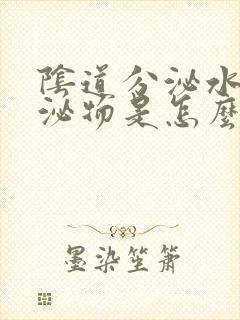 陰道分泌水
泌物是怎麼
墨染笙簫